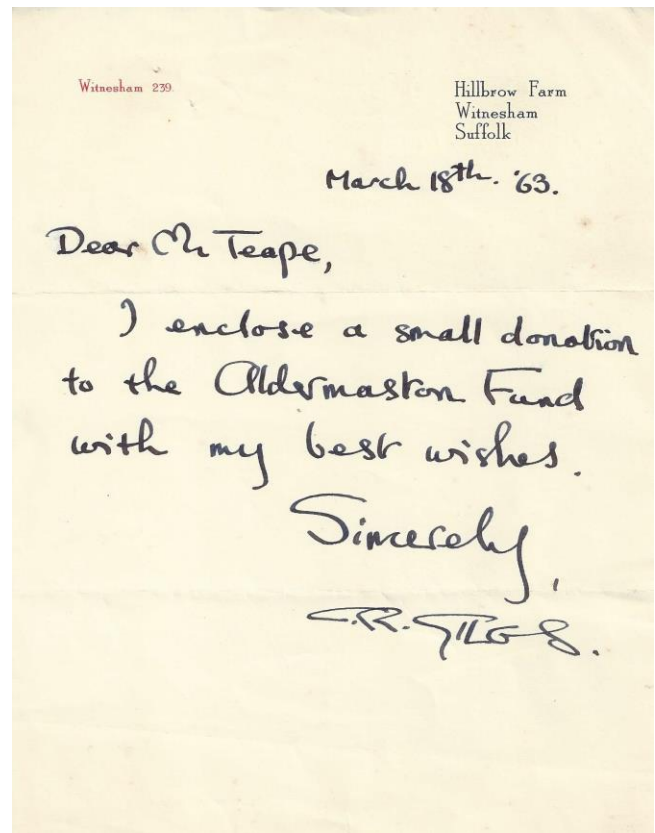 Witnesham 239
Hillbrow Farm
Witnesham
Suffolk
March 18th. '63.
Dear Mr Teape,
I enclose a small donation
to the Aldermaston Fund
with my best wishes.
Sincerely,
C.R. GILES.